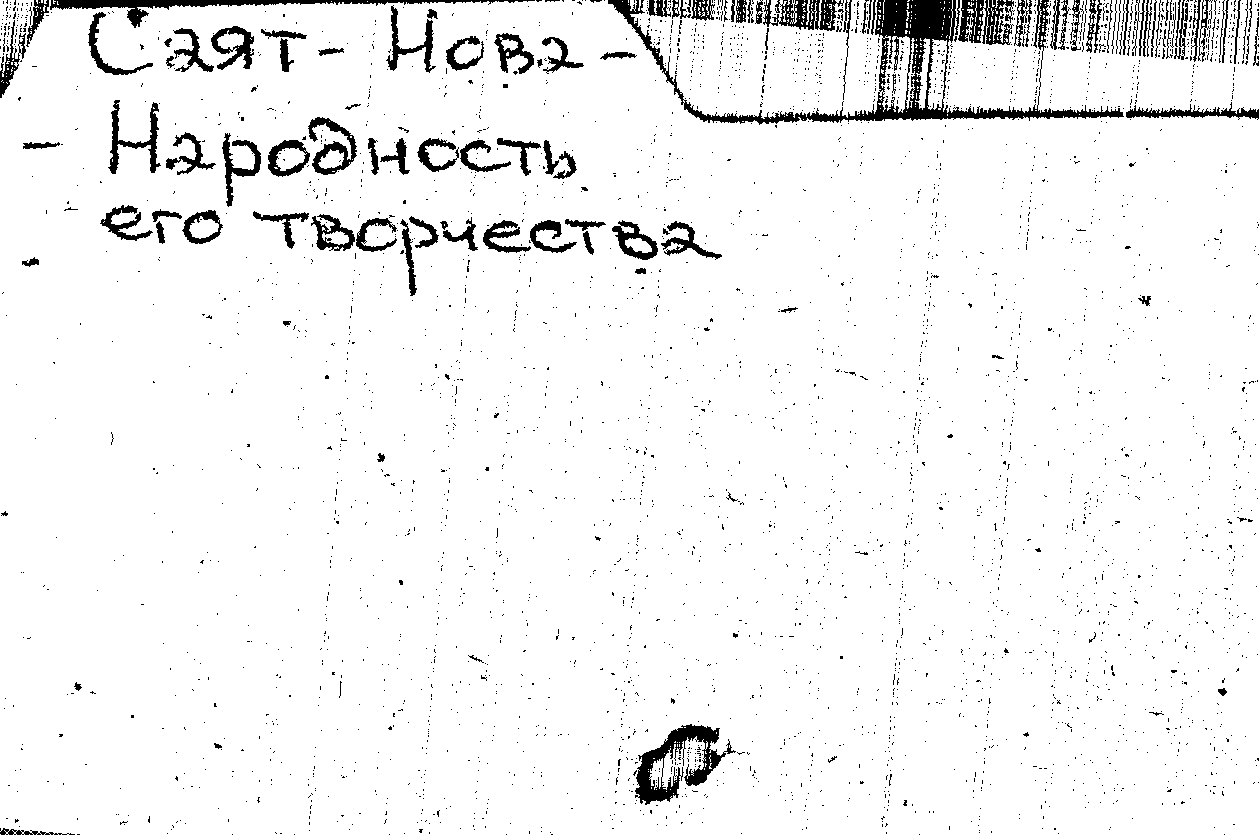 Саят-Нова -
- Народность
его творчества